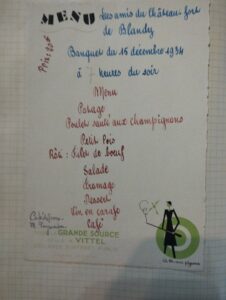 MENU
Les amis du Château fort
de Blandy
Banquet du 15 décembre 1934
à 7 heures du soir
Prix: 20f
Menu
Potage
Poulet sauté aux champignons
Petit Pois
Rôti: Filet de boeuf
Salade
Fromage
Dessert
Vin en carafe
Café
GRANDE SOURCE
VITTEL